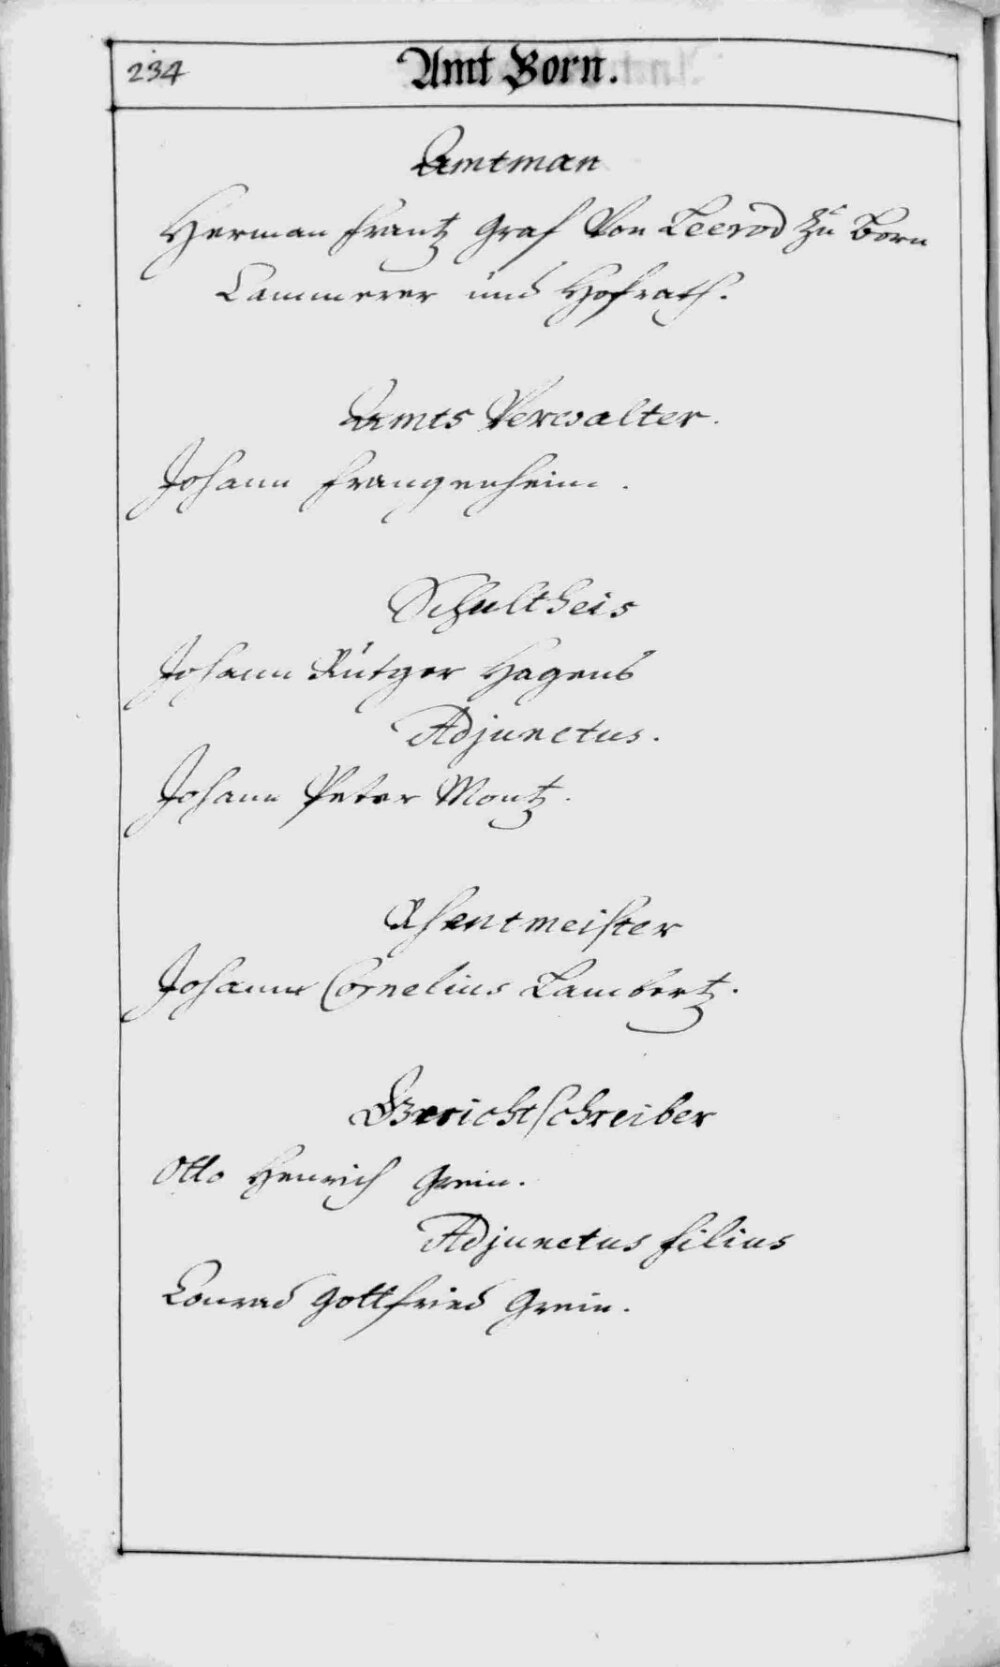 234
Amt Born.
Amtman
Herman Frantz Graf Von Leerod zu Born
Cammerer und Hofrath.
Amts Verwalter.
Johann Frangenheim.
Schultheis
Johann Rütger Hagens
Adjunctus.
Johann Peter Montz.
Rhentmeister
Johann Cornelius Lambertz.
Gerichtschreiber
Otto Henrich Grein.
Adjunctus filius
Conrad Gottfried Grein.